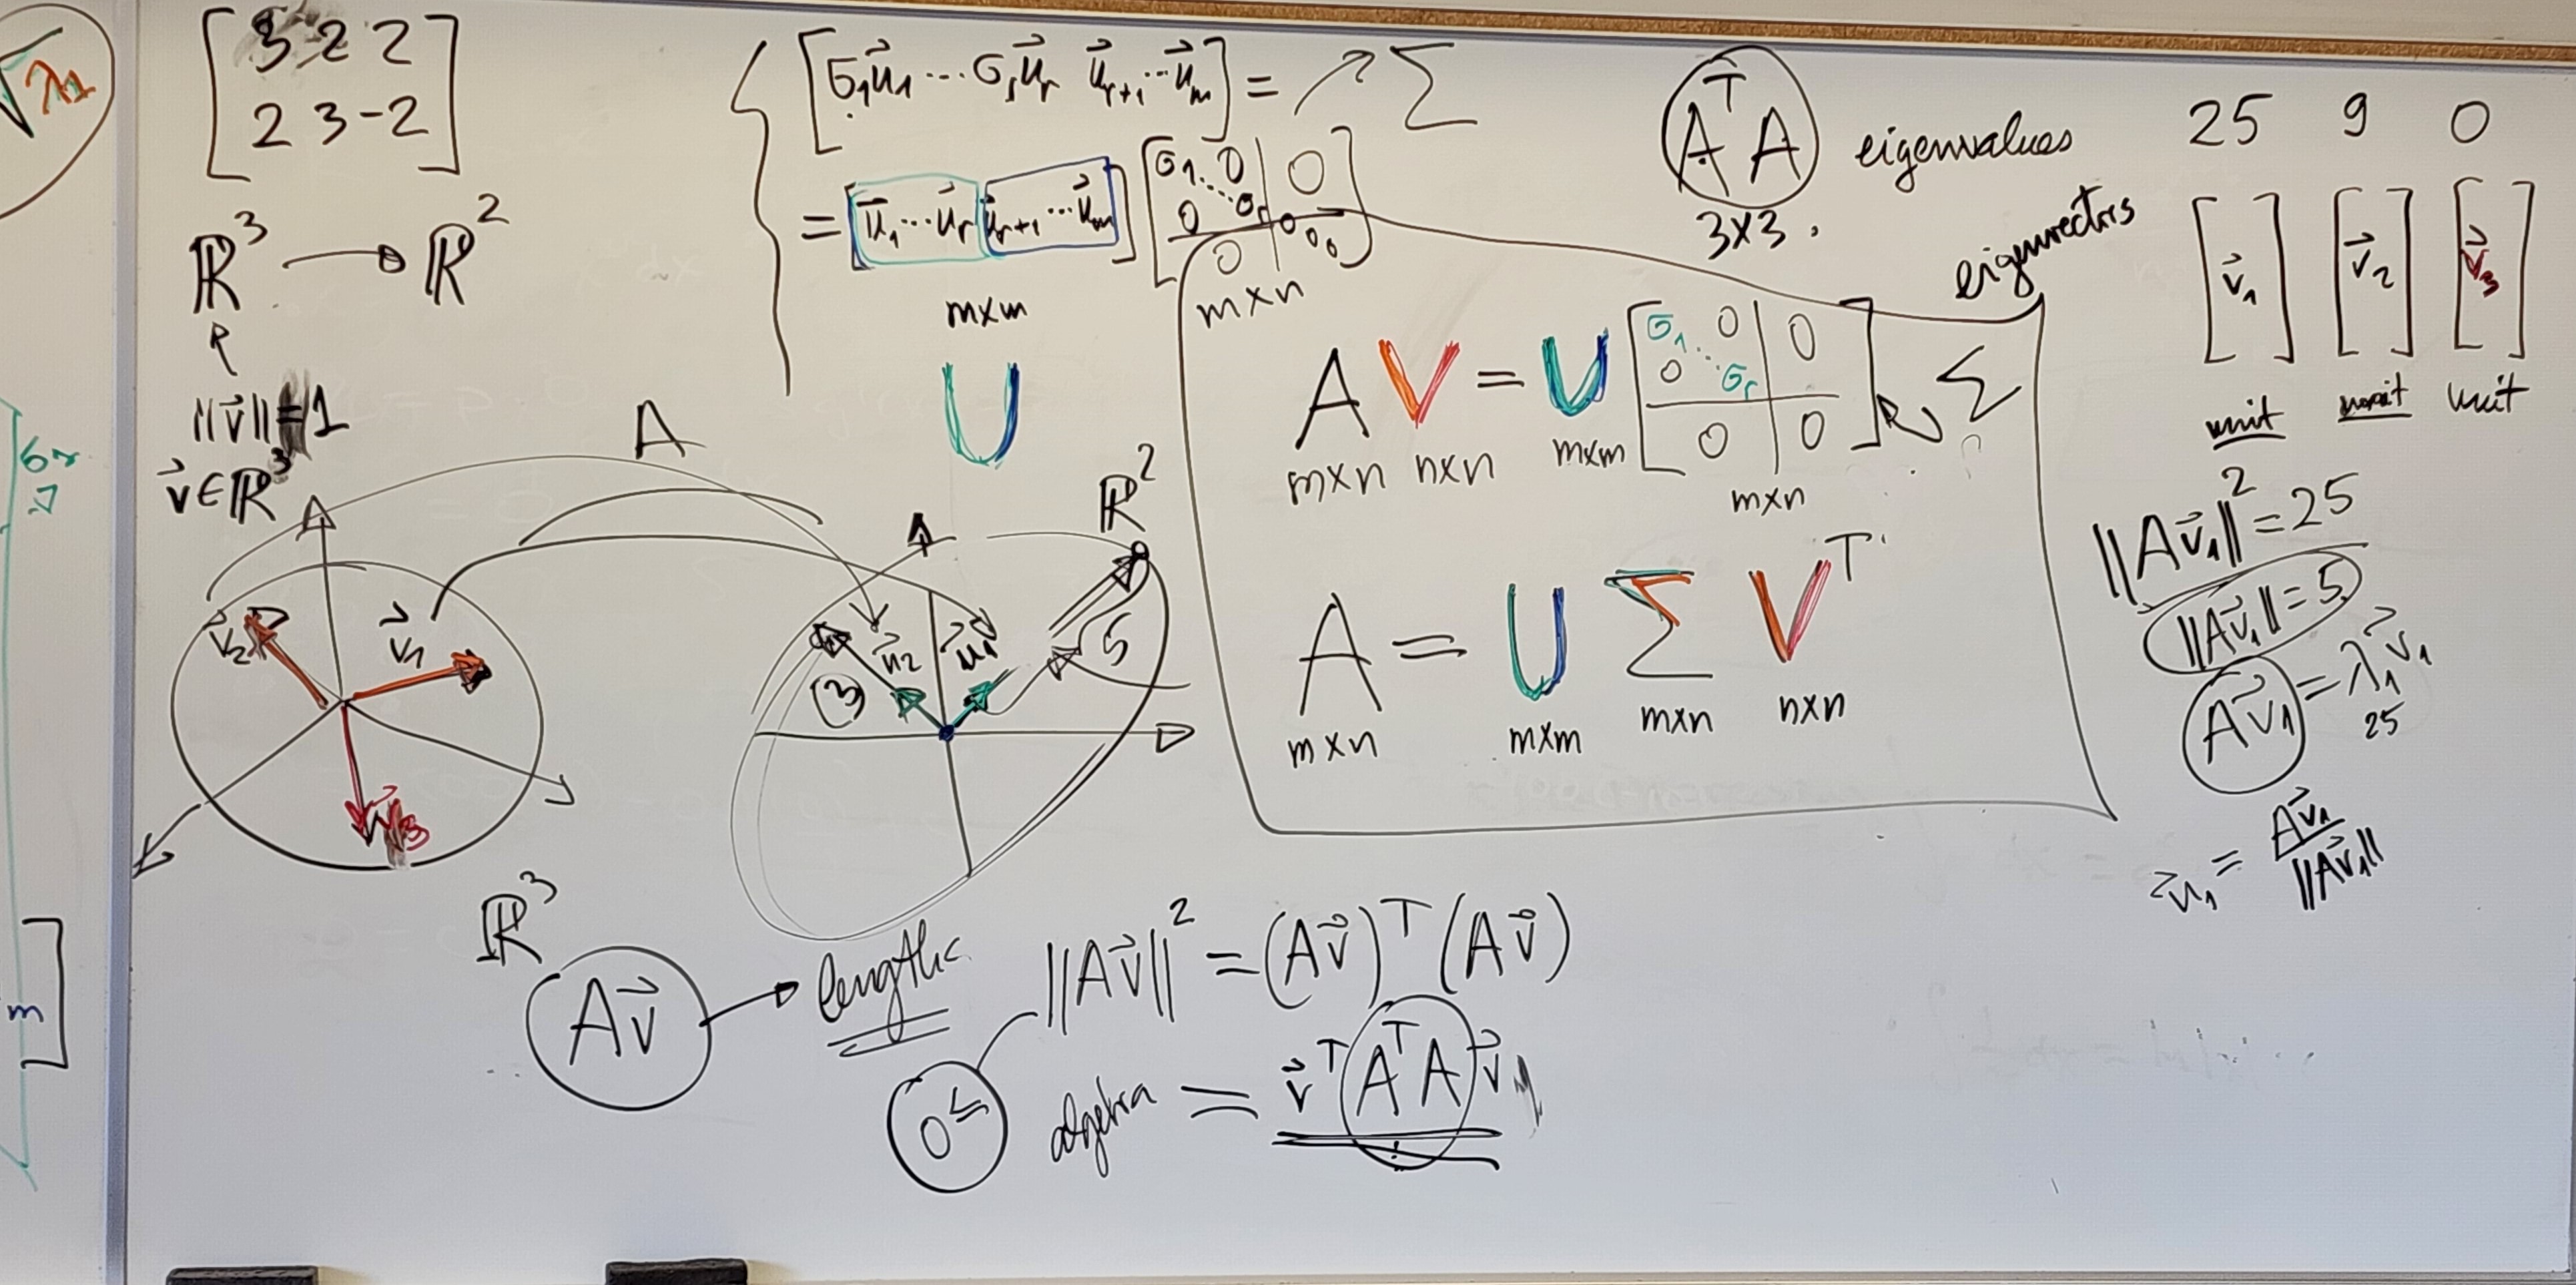 √λ₁
[ 3 2 2 ]
[ 2 3 -2 ]
ℝ³ → ℝ²
‖v⃗‖ = 1
v⃗ ∈ ℝ³
[ σ₁u⃗₁ ... σᵣu⃗ᵣ u⃗ᵣ₊₁ ... u⃗ₘ ] = ↗ Σ
= [ u⃗₁ ... u⃗ᵣ u⃗ᵣ₊₁ ... u⃗ₘ ] [ σ₁ 0 | 0
0 σᵣ | 0 0 0
0 ]
m×m
m×n
U
AᵀA eigenvalues 25 9 0
3×3.
eigenvectors [ v⃗₁ ] [ v⃗₂ ] [ v⃗₃ ]
unit unit unit
A V = U [ σ₁ 0 | 0
0 σᵣ
0 | 0 ] Σ
m×n n×n m×m m×n
A = U Σ Vᵀ
m×n m×m m×n n×n
‖Av⃗₁‖² = 25
‖Av⃗₁‖ = 5
Av⃗₁ = λ₁v⃗₁
25
u⃗₁ = Av⃗₁ / ‖Av⃗₁‖
A
ℝ²
v⃗₂ v⃗₁
v⃗₃
ℝ³
u⃗₂ u⃗₁ 5
3
Av⃗ → length
‖Av⃗‖² = (Av⃗)ᵀ(Av⃗)
0 ≤ algebra = v⃗ᵀAᵀAv⃗
σᵣ
m ]